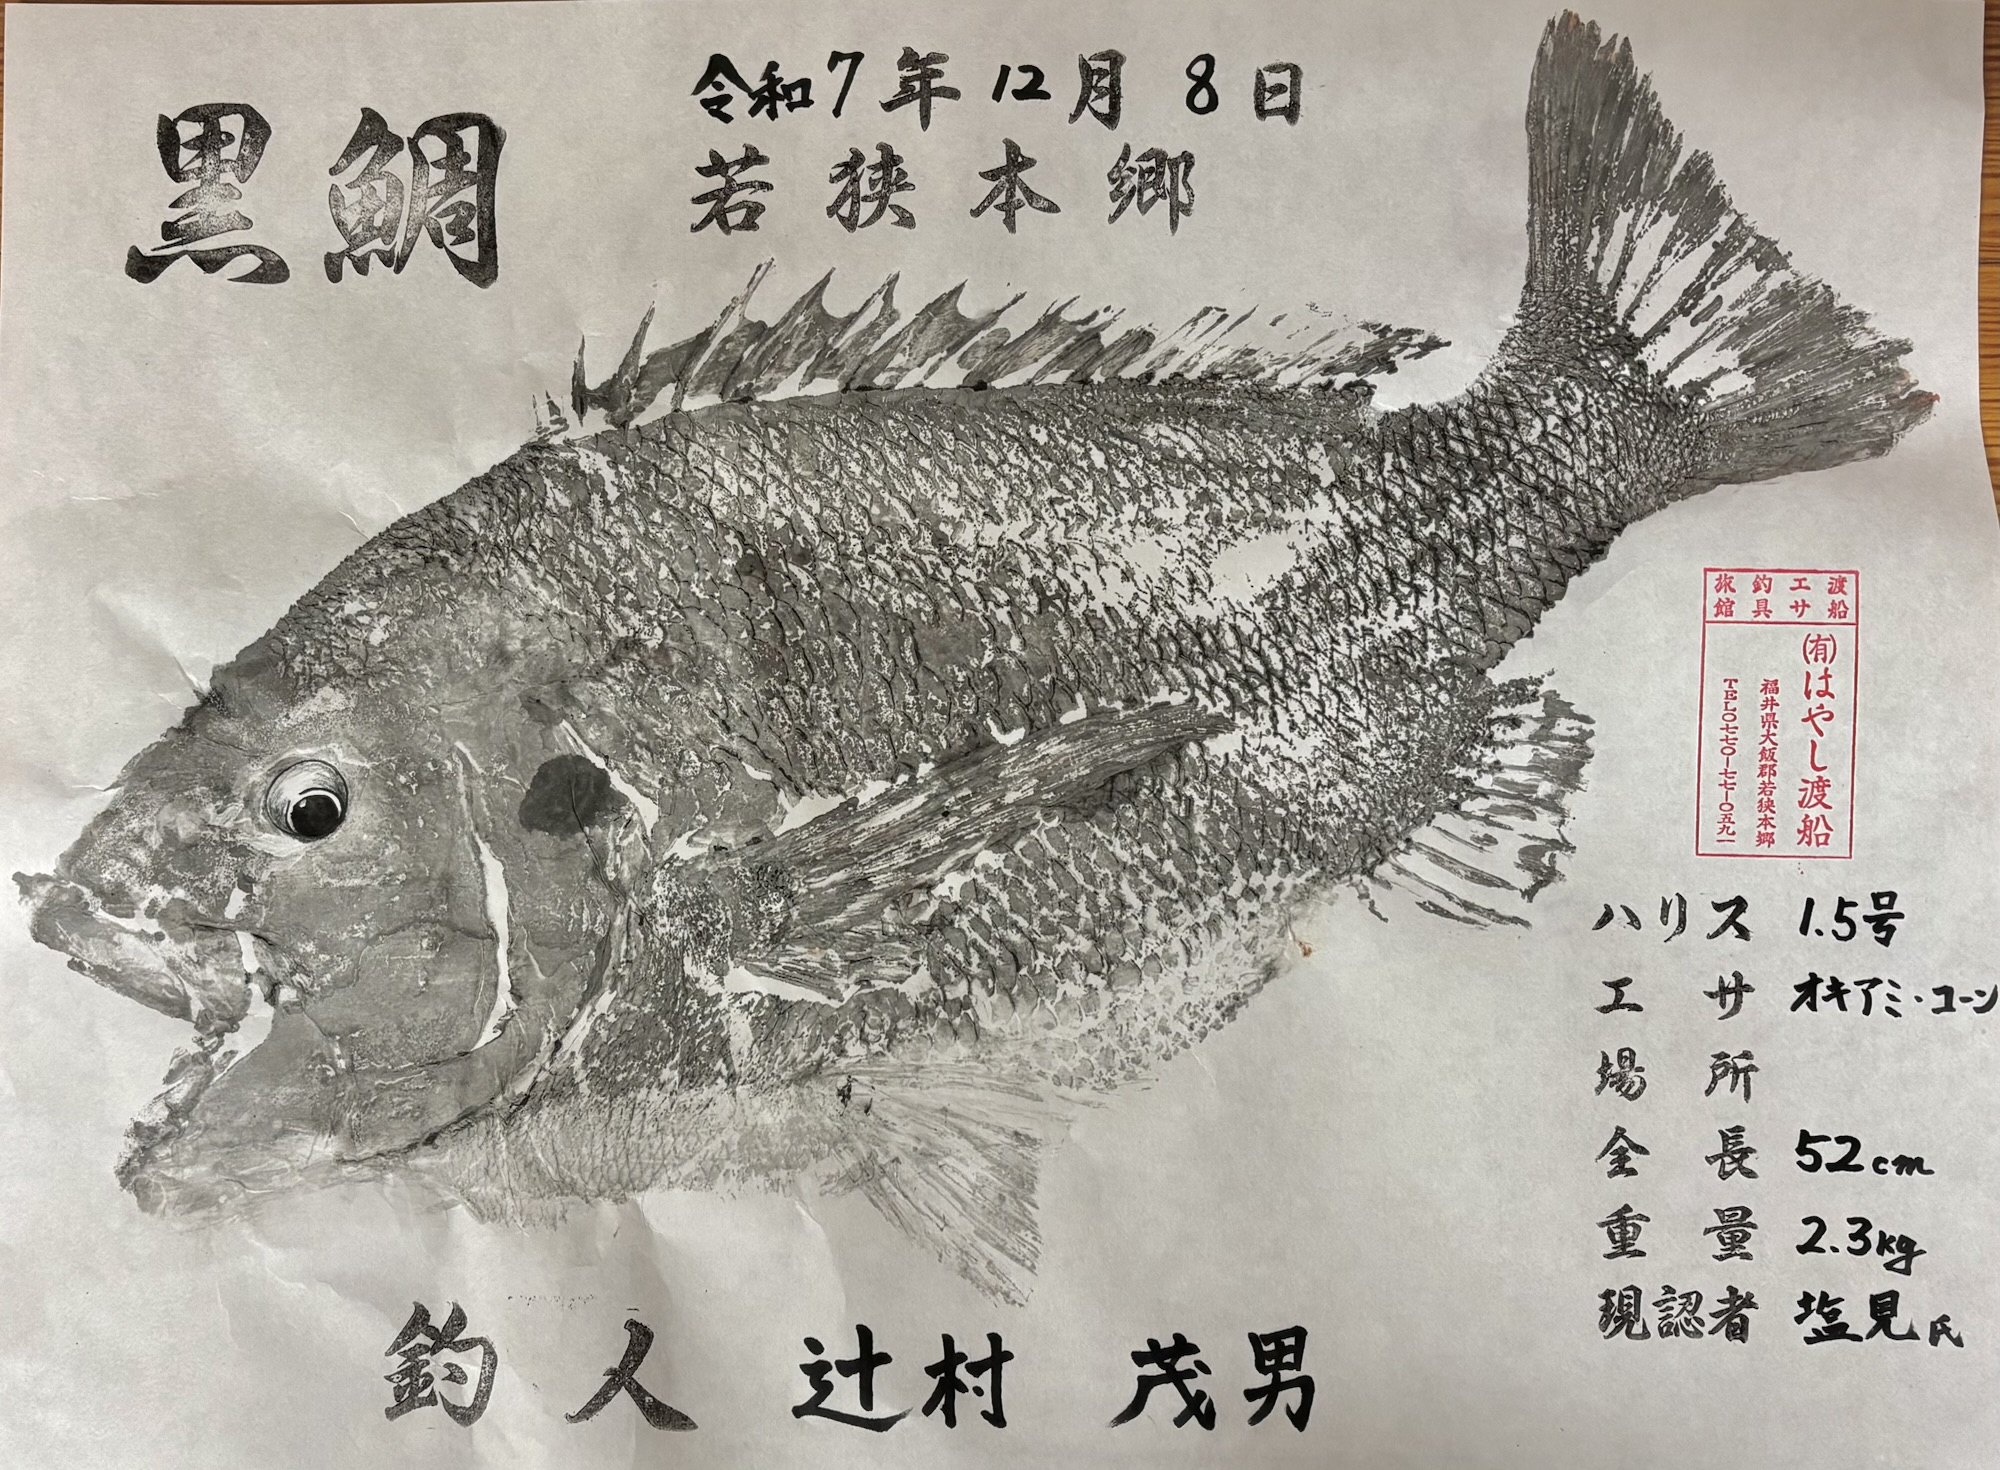 黒鯛
令和7年12月8日
若狭本郷
渡船
エサ
釣具
旅館
(有)はやし渡船
福井県大飯郡若狭本郷
TEL〇七七〇ー七七ー〇五九一
ハリス 1.5号
エサ オキアミ・コーン
場所
全長 52cm
重量 2.3kg
現認者 塩見氏
釣人 辻村 茂男